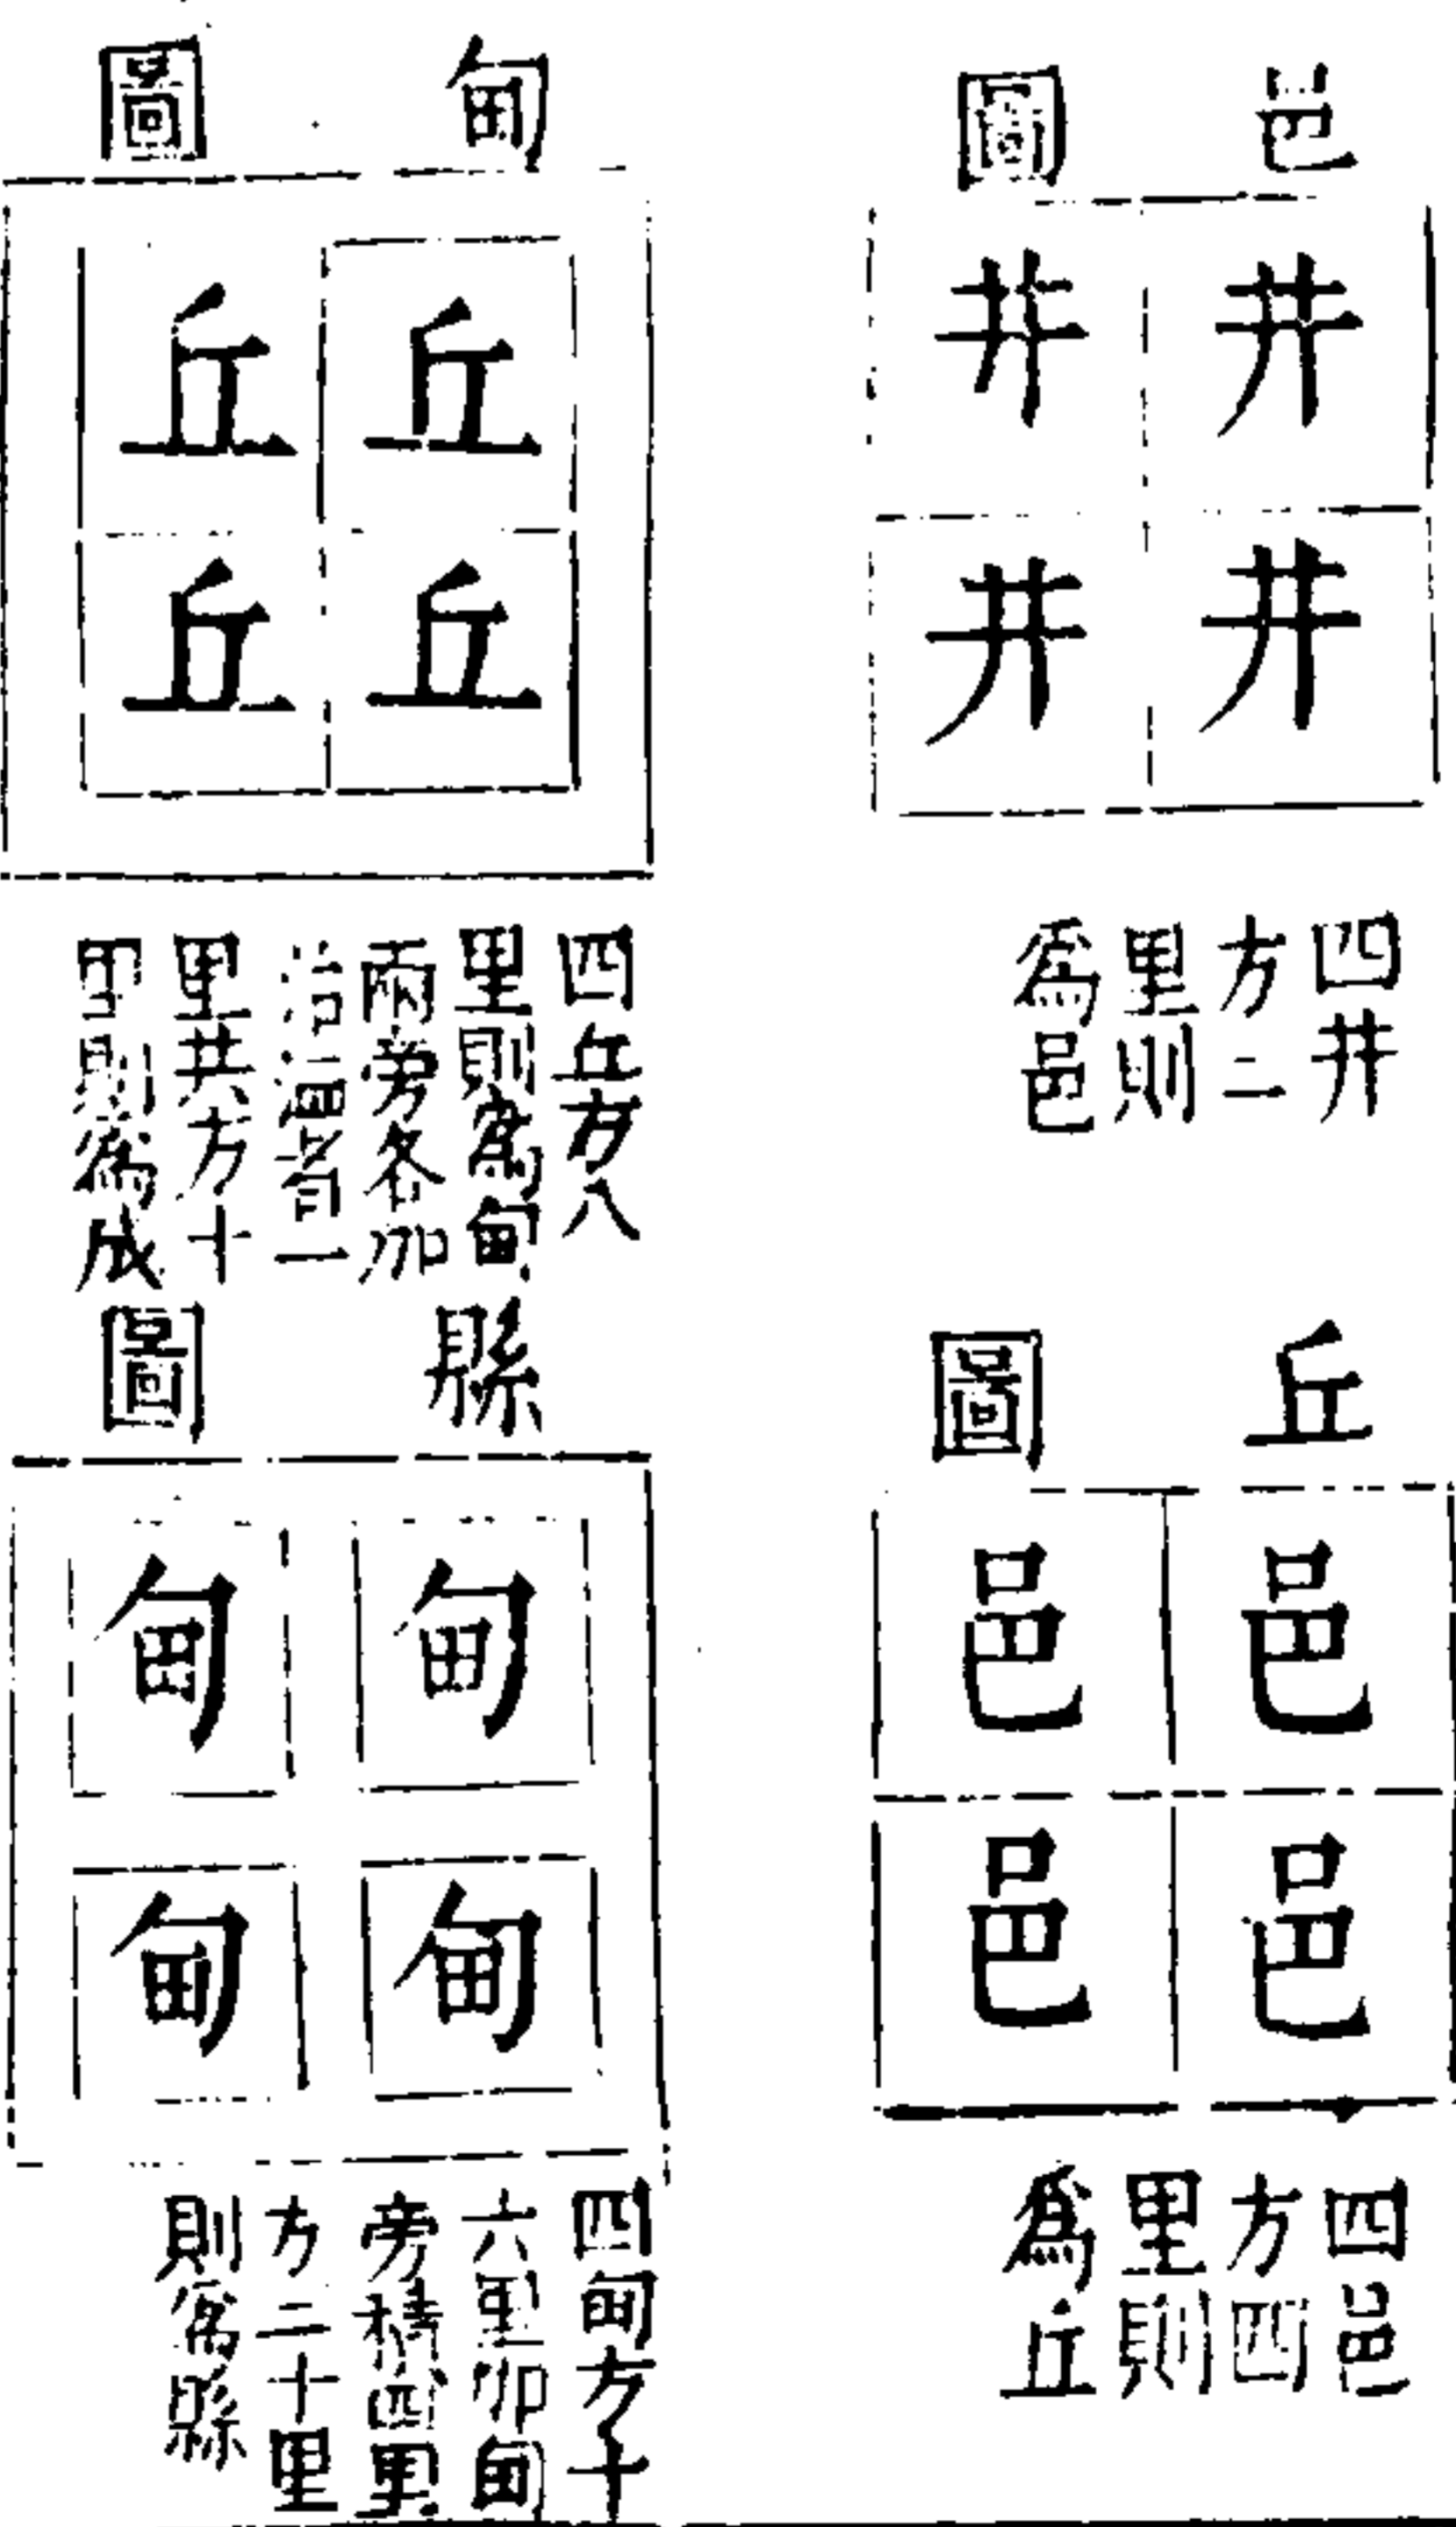 邑圖
井井
井井
四井
方二
里則
爲邑
丘圖
邑邑
邑邑
四邑
方四
里則
爲丘
甸圖
丘丘
丘丘
四丘方八
里則爲甸
兩旁各加
治洫者一
里共方十
里則爲成
縣圖
甸甸
甸甸
四甸方十
六里加甸
旁積四里
方二十里
則爲縣